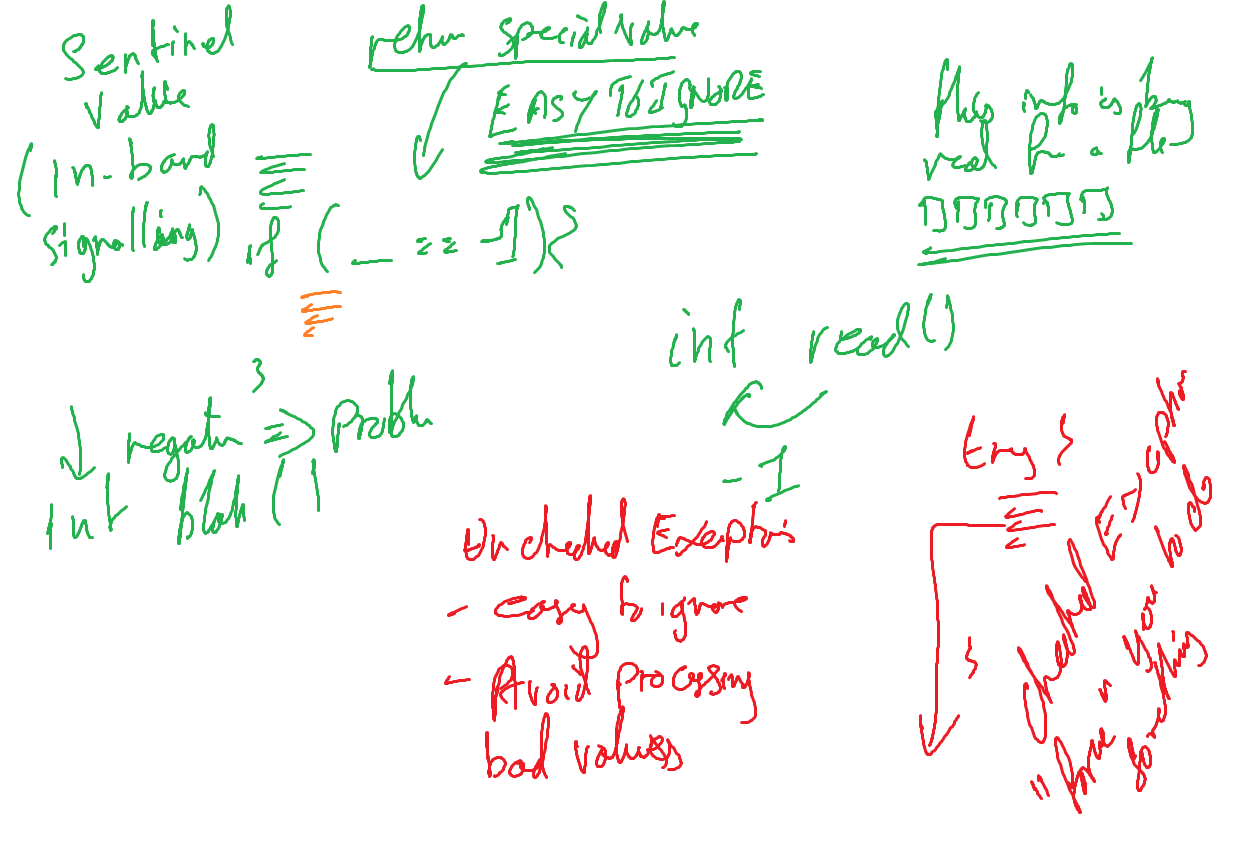 Sentinel
Value
(in-band
signalling)
return special value
EASY TO IGNORE
if ( __ == -1) {
}
this info is being
read from a file
int read()
-1
negative => Problem
int blah()
Unchecked Exceptions
- easy to ignore
- Avoid processing
bad values
try {
}
Checked Exception
"force" you to do
something